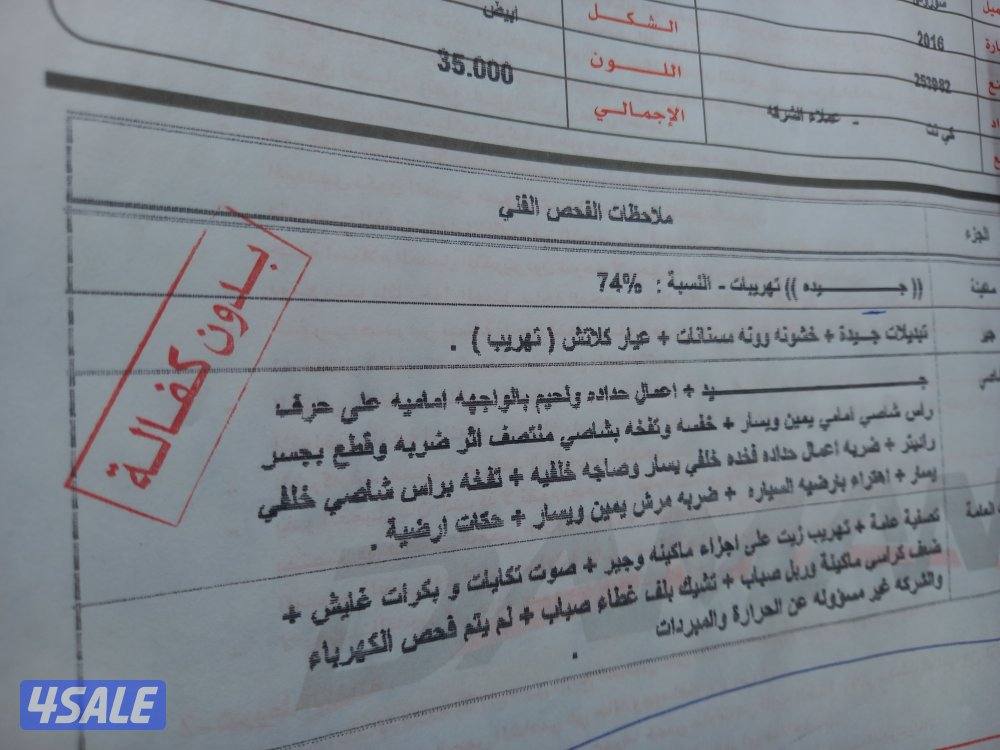 الشكل
ابيض
2016
اللـــون
253982
الإجمالي
35.000
في نت - عملاء الشركه
ملاحظات الفحص الفني
الجزء
(( جـــــيده )) تهريبات - النسبة : 74%
تبديلات جـيدة + خشونه وونه مسننات + عيار كلاتش ( تهريب ) .
جـــــــــــــــيد + اعمال حداده ولحيم بالواجهه اماميه على حرف
راس شاصي امامي يمين ويسار + خفسه وتفخه بشاصي منتصف اثر ضربه وقطع بجسر
رانيتر + ضربه اعمال حداده فخده خلفي يسار وصاجه خلفيه + تفخه براس شاصي خلفي
يسار + اهتراء بارضيه السياره + ضربه مرش يمين ويسار + حكات ارضية .
العامة
تصفية عامة + تهريب زيت على اجزاء ماكينه وجير + صوت تكايات و بكرات غايش +
ضعف كراسي ماكينة وربل صباب + تشيك بلف غطاء صباب + لم يتم فحص الكهرباء
والشركه غير مسؤوله عن الحرارة والمبردات .
بـدون كفـالـة
4SALE